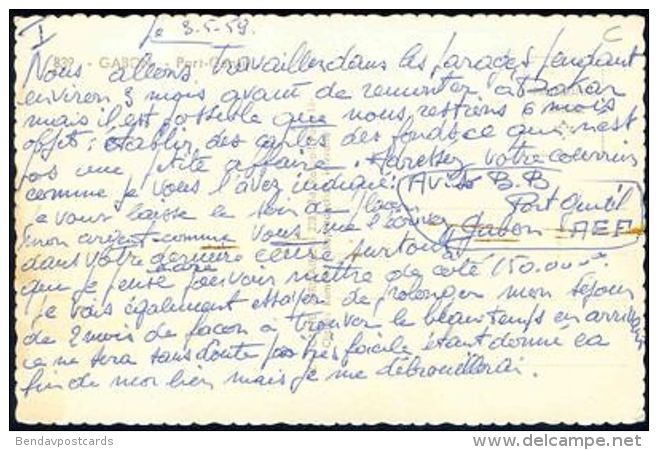 I
C
le 3.5.59.
832. - GABON. - Port-Gentil
Nous allons travailler dans les parages pendant
environ 3 mois avant de remonter à Dakar
mais il est possible que nous restions 6 mois
objet : établir des cartes des fonds ce qui n'est
pas une petite affaire. Adressez votre courrier
comme je vous l'avez indiqué : Aviso B.B
Port Gentil
Gabon AEF
je vous laisse le soin de placer
mon argent comme vous me l'écrivez
dans votre dernière lettre surtout
que je pense pouvoir mettre de coté 150.000
je vais également essayer de prolonger mon séjour
de 2 mois de façon à trouver le beau temps en arrivant
ce ne sera sans doute pas très facile étant donné la
fin de mon lien mais je me débrouillerai.
Bendavpostcards
delcampe.net